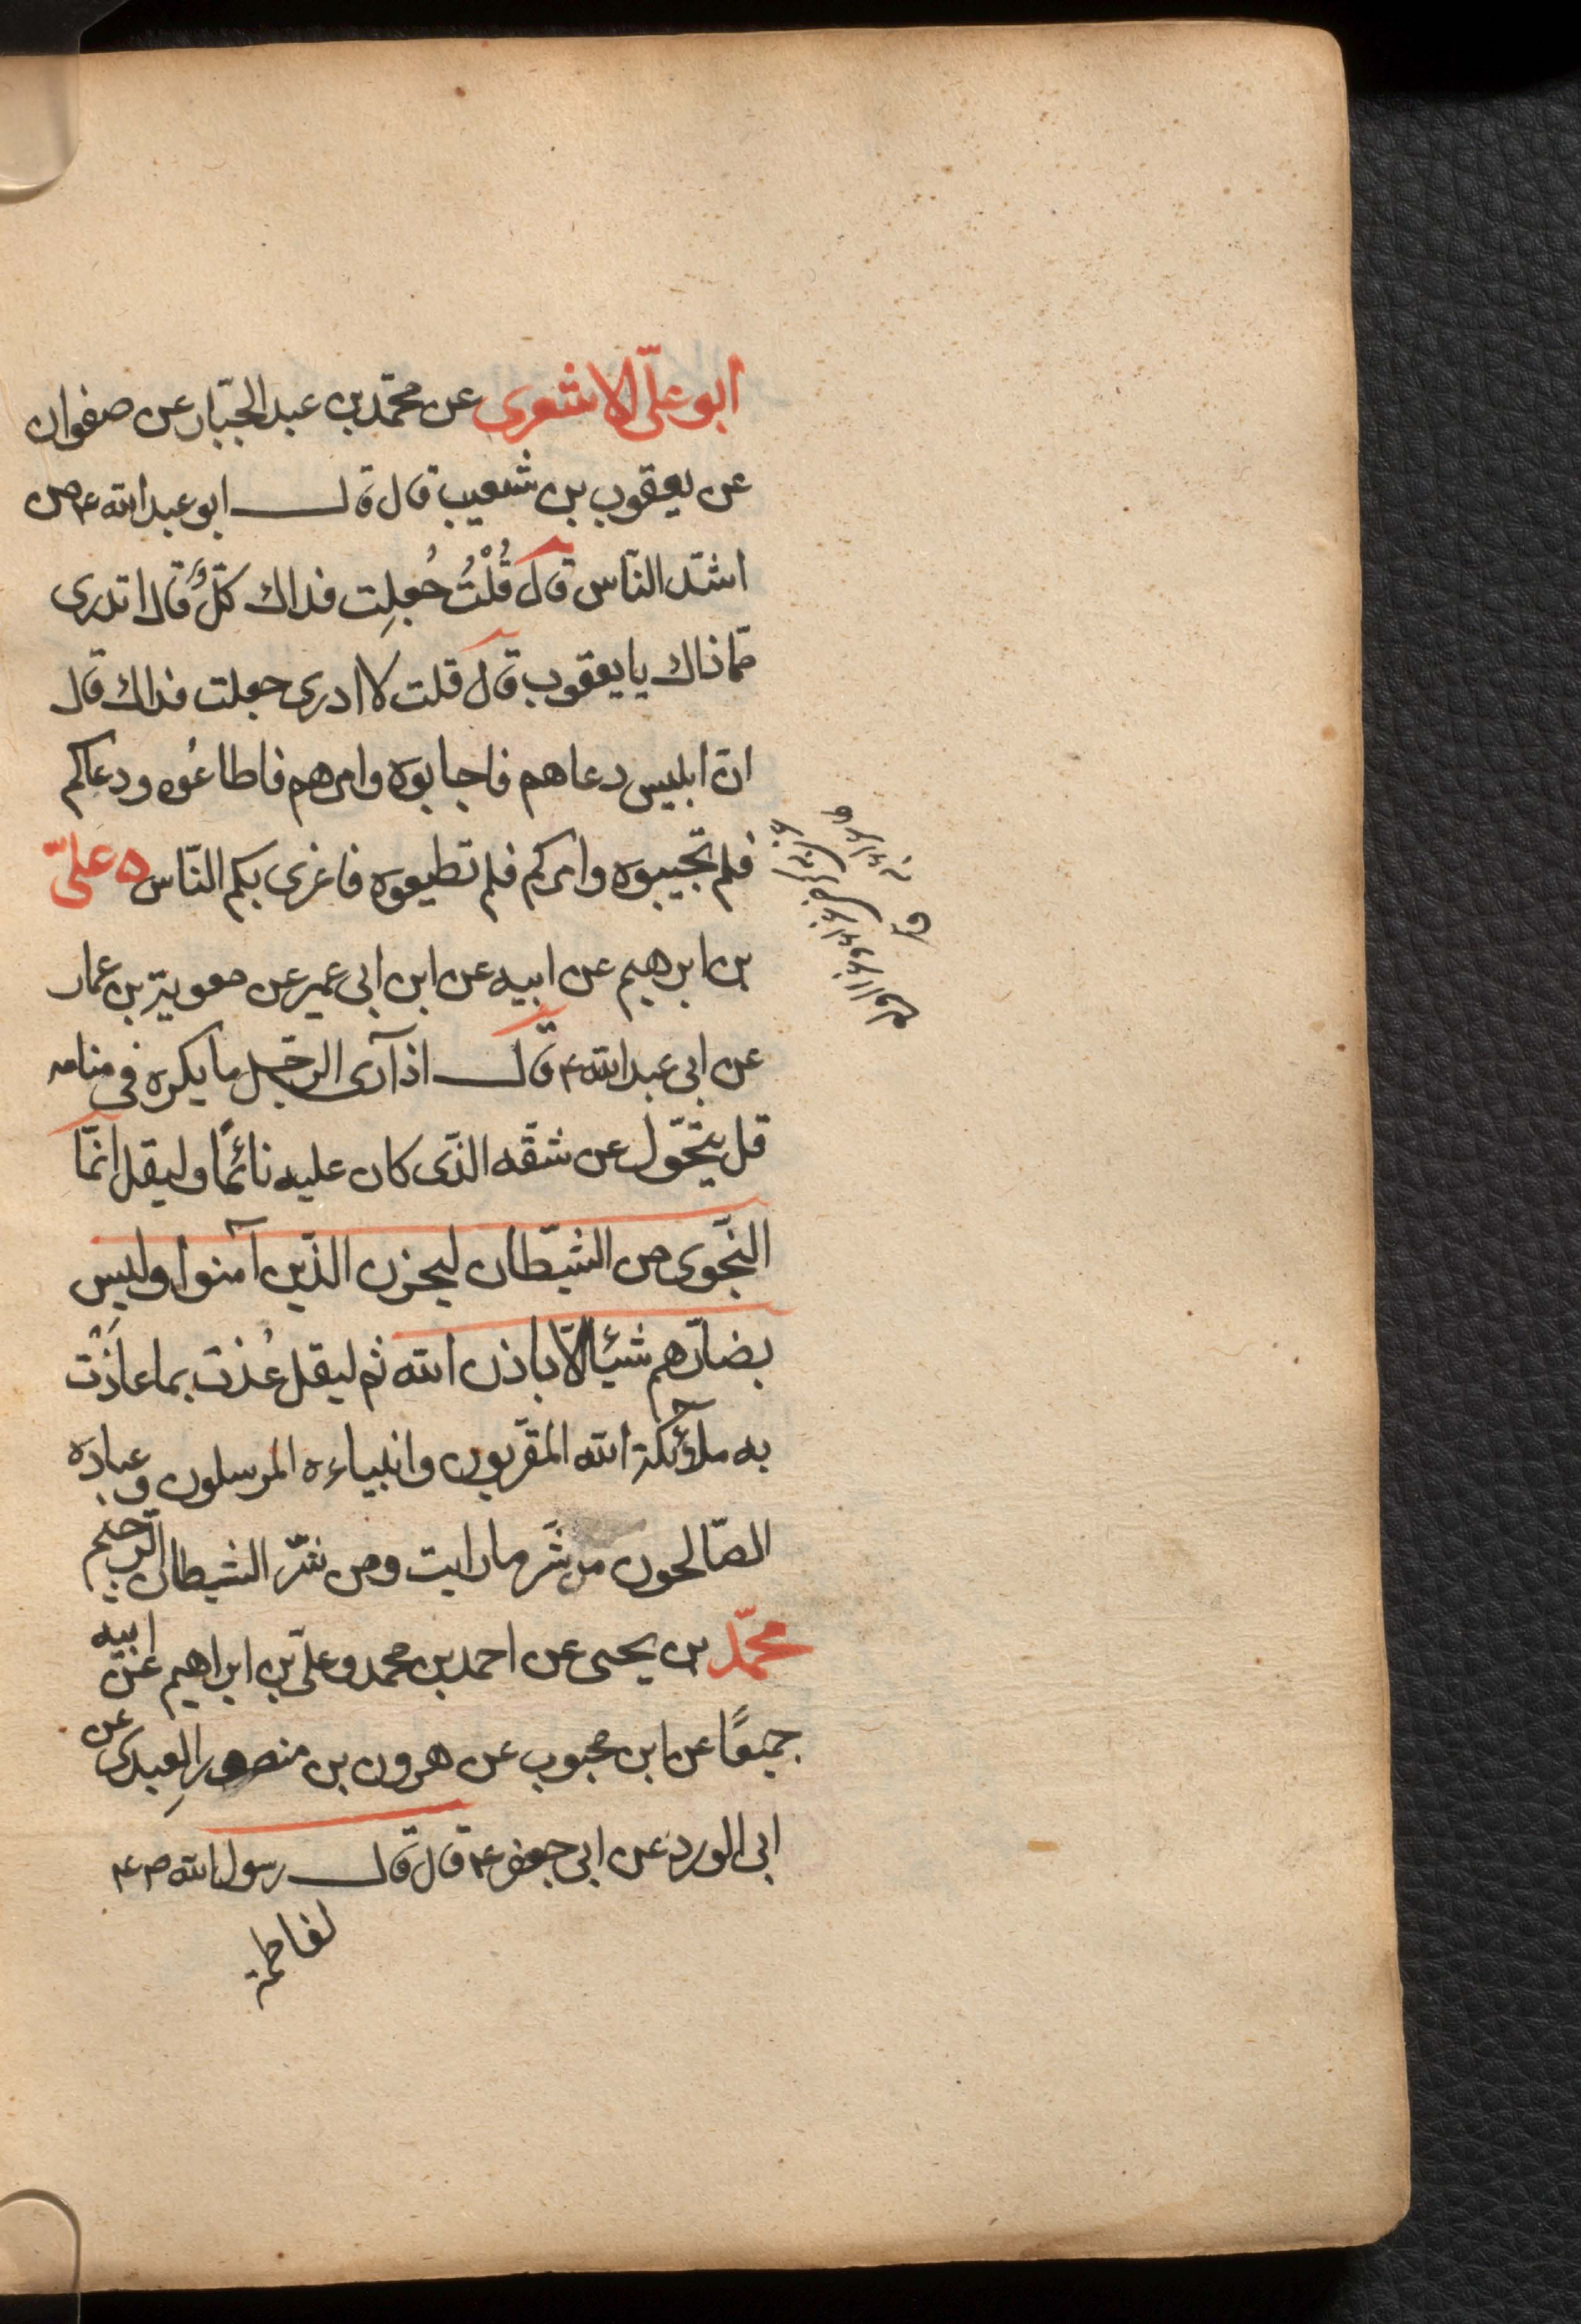 ابو علىّ الاشعرى عن محمّد بن عبد الجبّار عن صفوان
عن يعقوب بن شعيب قال قال ابو عبد الله ع من
اشدّ الناس قال قُلْتُ جُعلِت فداك كلٌّ قال اتدرى
ممّا ذاك يا يعقوب قال قلت لا ادرى جعلت فداك قال
انّ ابليس دعاهم فاجابوه وامرهم فاطاعُوه ودعاكم
فلم تجيبوه وامركم فلم تطيعوه فاغرى بكم النّاس ه علىّ
بن ابرهيم عن ابيه عن ابن ابى عمير عن معوية بن عمار
عن ابى عبد الله ع قال اذا رآى الرجل ما يكره فى منامه
فليتحوّل عن شقّه الذّى كان عليه نائمًا وليقل انمّا
النّجوى من الشيّطان ليحزن الذّين آمنوا وليس
بضارّهم شيئا الاّ باذن الله ثم ليقل عُذت بما عاذَتْ
به ملآئكة الله المقرّبون وانبياءه المرسلون وعباده
الصّالحون من شَر ما رايت ومن شرّ الشيطان الرّجيم
محمّد بن يحيى عن احمد بن محمد وعلىّ بن ابراهيم عن ابيه
جميعًا عن ابن محبوب عن هرون بن منصور العبدى عن
ابى الورد عن ابى جعفر ع قال قال رسول الله ص ع
لفاطمة